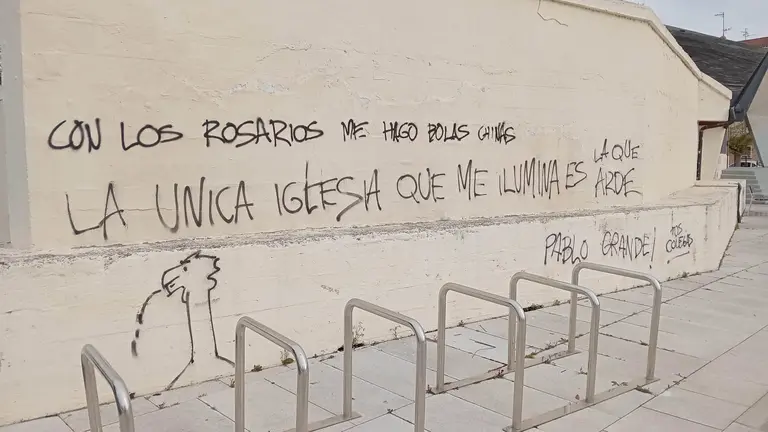 CON LOS ROSARIOS ME HAGO BOLAS CHINAS
LA UNICA IGLESIA QUE ME ILUMINA ES LA QUE ARDE
PABLO GRANDE!
TOS COLEGAS